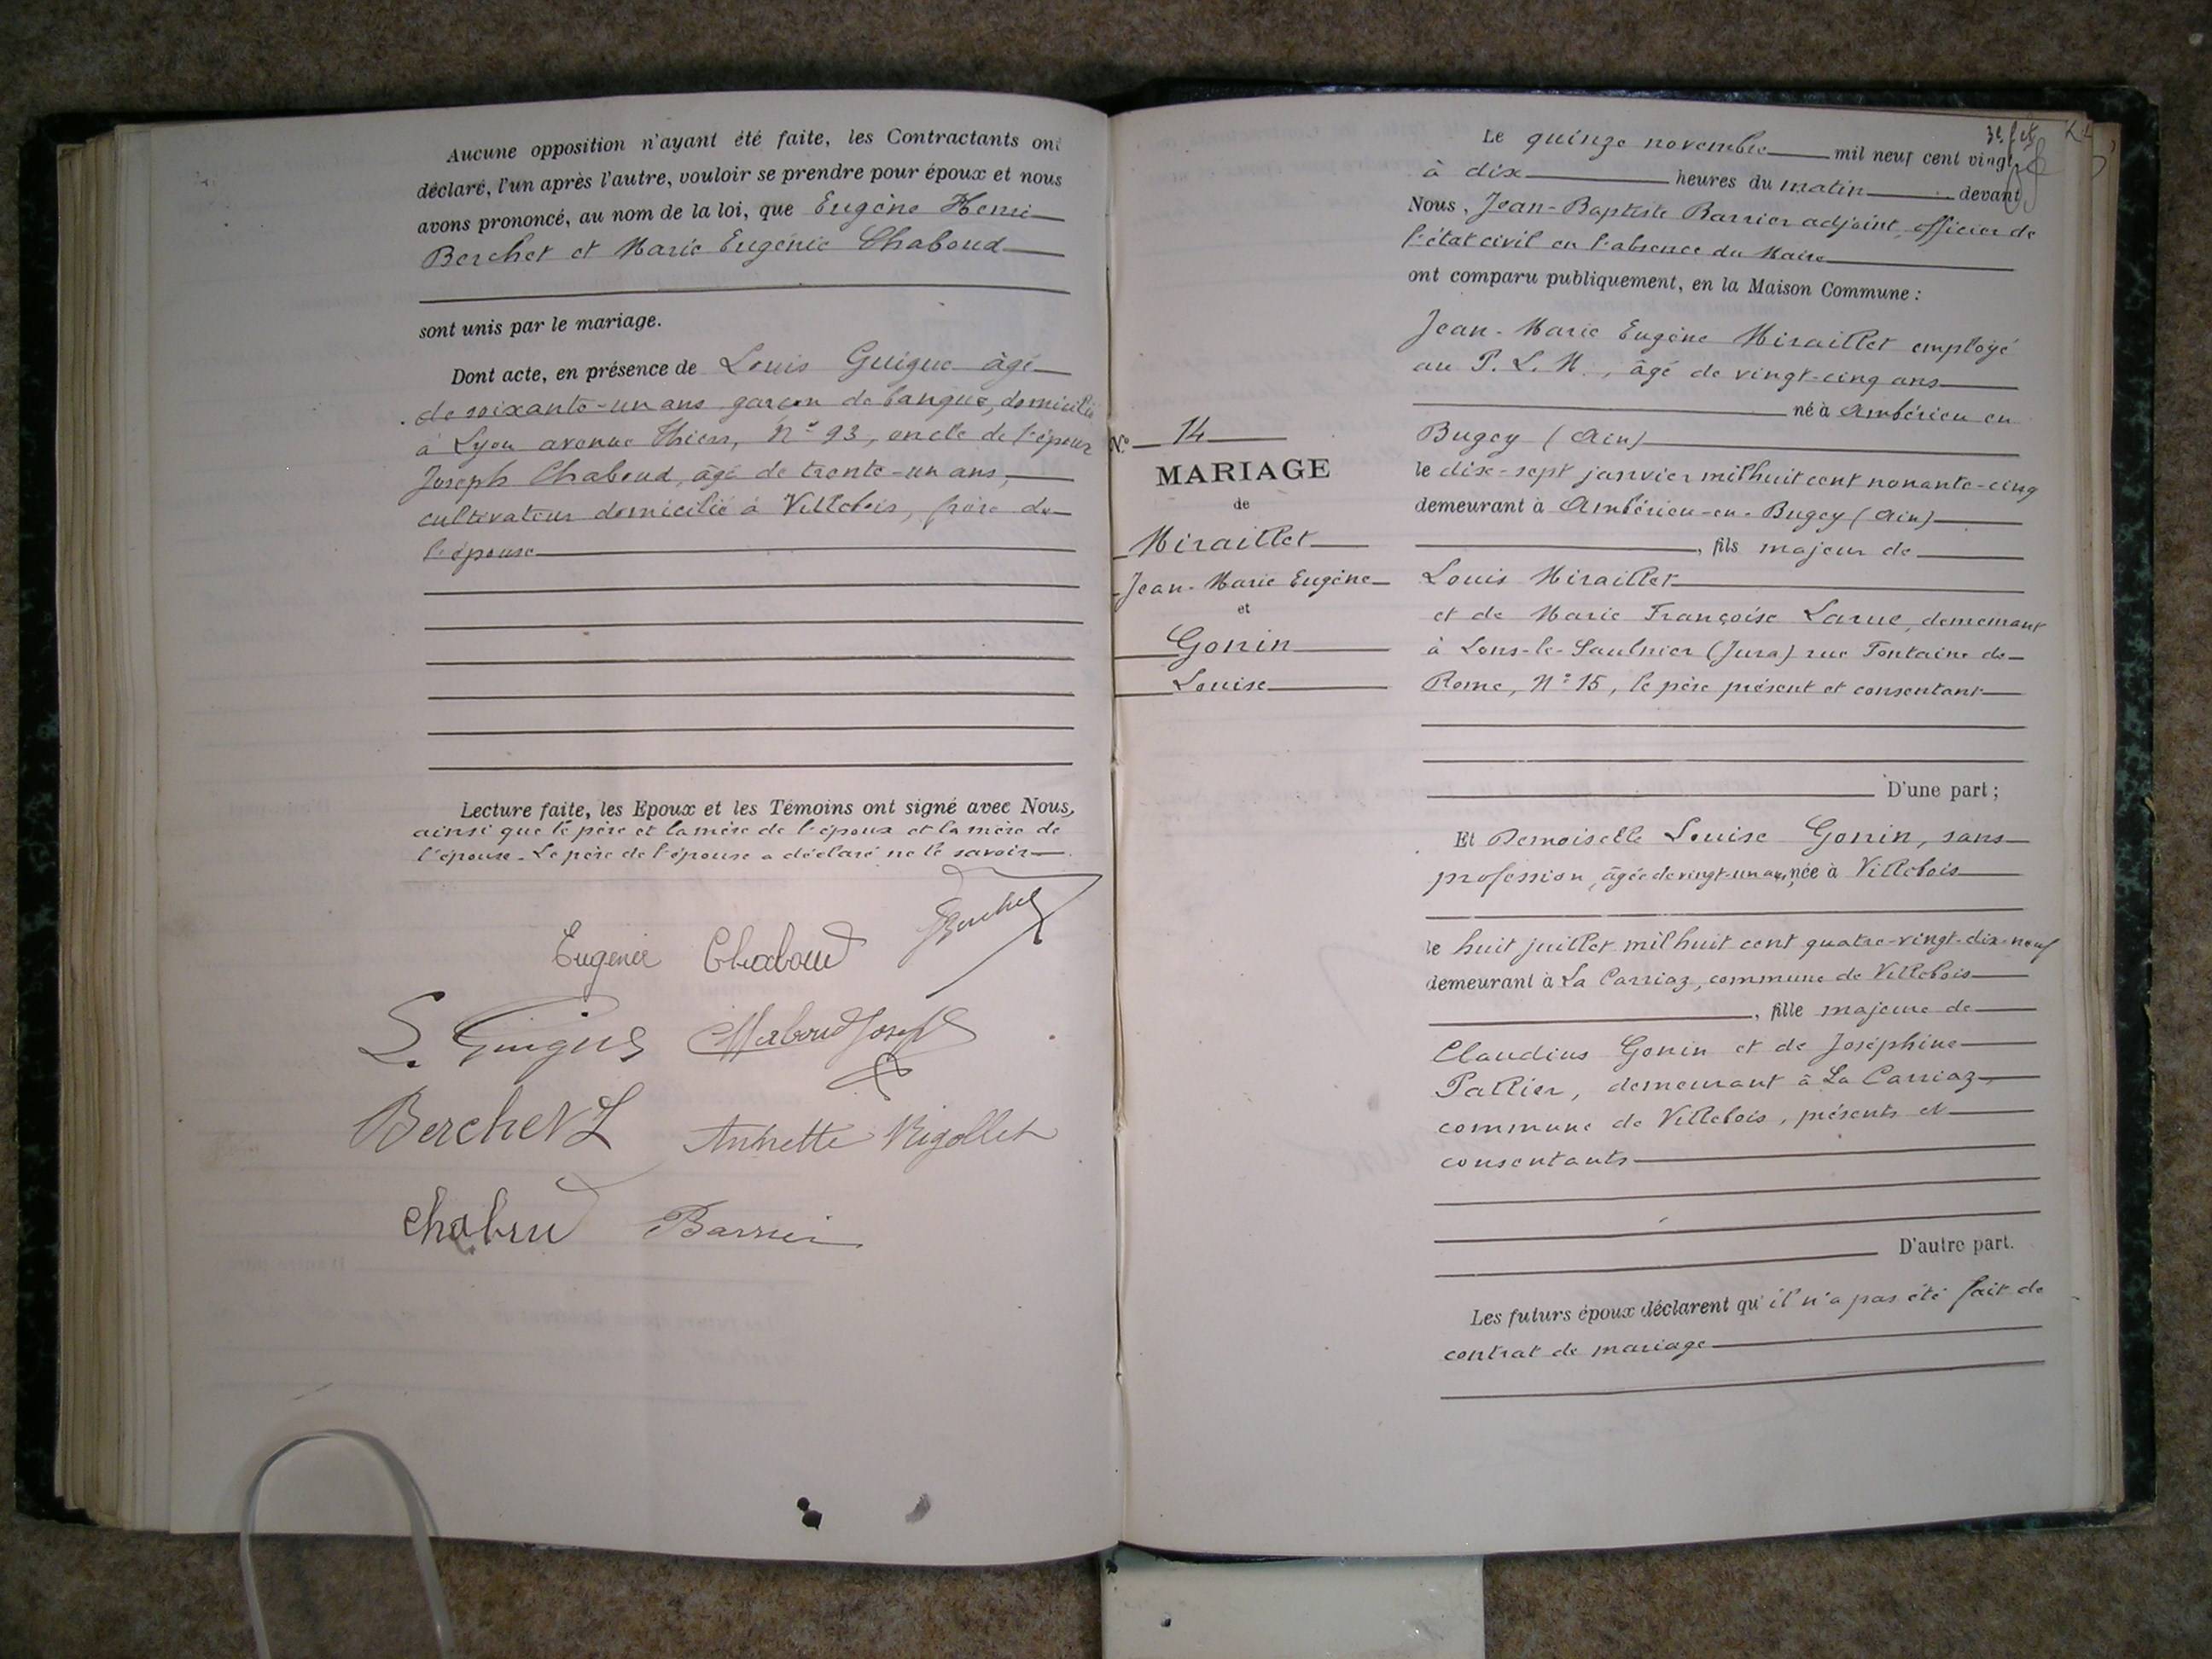 Aucune opposition n'ayant été faite, les Contractants ont
déclaré, l'un après l'autre, vouloir se prendre pour époux et nous
avons prononcé, au nom de la loi, que Eugène Henri
Berchet et Marie Eugénie Chaboud
sont unis par le mariage.
Dont acte, en présence de Louis Guigue âgé
de soixante-un ans garçon de banque, domicilié
à Lyon avenue Thiers, N° 93, oncle de l'époux
Joseph Chaboud, âgé de trente-un ans,
cultivateur domicilié à Villebois, frère de
l'épouse
Lecture faite, les Epoux et les Témoins ont signé avec Nous,
ainsi que le père et la mère de l'époux et la mère de
l'épouse. Le père de l'épouse a déclaré ne le savoir
Eugénie Chaboud Berchet
L. Guigue Chaboud Joseph
Berchet L Annette Rigollet
Chaboud Barrier
N° 14
MARIAGE
de
Miraillet
Jean-Marie Eugène
et
Gonin
Louise
Le quinze novembre mil neuf cent vingt
à dix heures du matin devant
Nous, Jean-Baptiste Barrier adjoint, officier de
l'état civil en l'absence du Maire
ont comparu publiquement, en la Maison Commune :
Jean-Marie Eugène Miraillet employé
au P. L. M., âgé de vingt-cinq ans
né à Ambérieu en
Bugey (Ain)
le dix-sept janvier mil huit cent nonante-cinq
demeurant à Ambérieu-en-Bugey (Ain)
, fils majeur de
Louis Miraillet
et de Marie Françoise Larue, demeurant
à Lons-le-Saulnier (Jura) rue Fontaine de
Rome, N° 15, le père présent et consentant
D'une part ;
Et Demoiselle Louise Gonin, sans
profession, âgée de vingt-un ans, née à Villebois
le huit juillet mil huit cent quatre-vingt-dix-neuf
demeurant à La Carriaz, commune de Villebois
, fille majeure de
Claudius Gonin et de Joséphine
Pallier, demeurant à La Carriaz
commune de Villebois, présents et
consentants
D'autre part.
Les futurs époux déclarent qu'il n'a pas été fait de
contrat de mariage